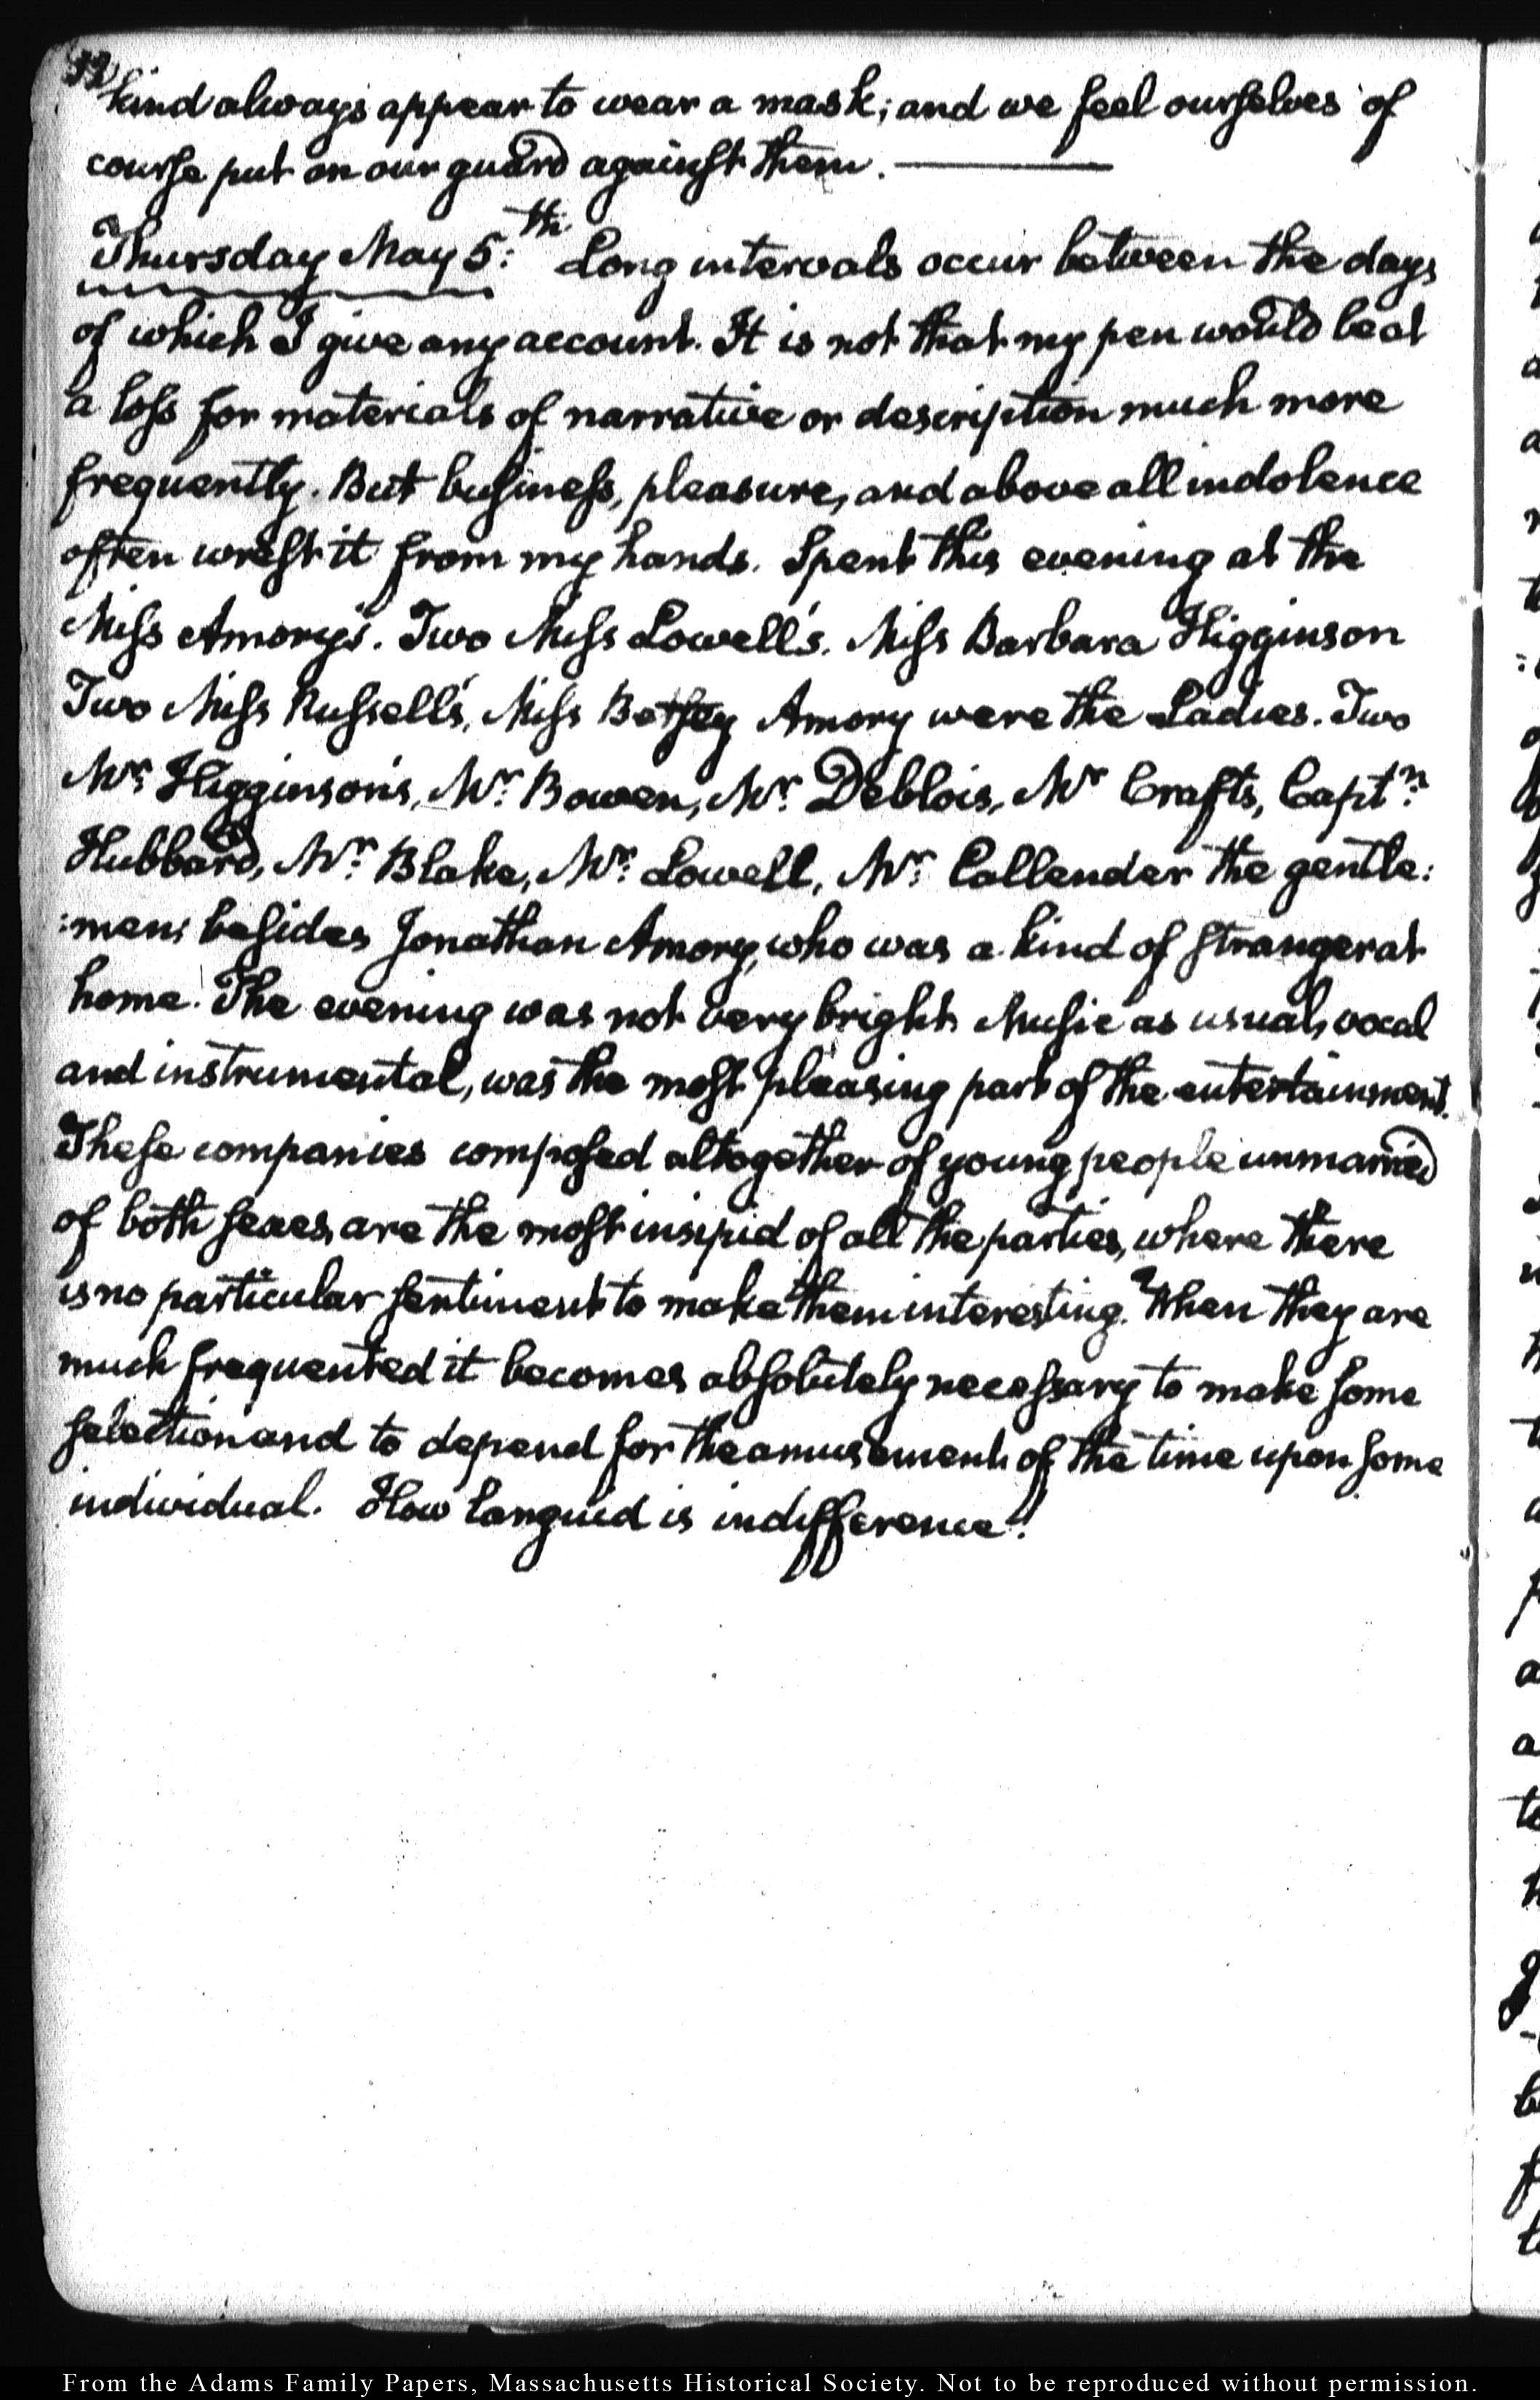 32
kind always appear to wear a mask; and we feel ourselves of
course put on our guard against them.
Thursday May 5:th Long intervals occur between the days
of which I give any account. It is not that my pen would be at
a loss for materials of narrative or description much more
frequently. But business, pleasure, and above all indolence
often wrest it from my hands. Spent this evening at the
Miss Amory's. Two Miss Lowell's. Miss Barbara Higginson
Two Miss Russell's, Miss Betsey Amory were the Ladies. Two
Mr. Higginson's, Mr. Bowen, Mr. Deblois, Mr Crafts, Captn:
Hubbard, Mr. Blake, Mr. Lowell, Mr. Callender the gentle:
:men; besides Jonathan Amory, who was a kind of stranger at
home. The evening was not very bright. Music as usual, vocal
and instrumental, was the most pleasing part of the entertainment.
These companies composed altogether of young people unmarried
of both sexes, are the most insipid of all the parties, where there
is no particular sentiment to make them interesting. When they are
much frequented it becomes absolutely necessary to make some
selection and to depend for the amusement of the time upon some
individual. How languid is indifference!
From the Adams Family Papers, Massachusetts Historical Society. Not to be reproduced without permission.